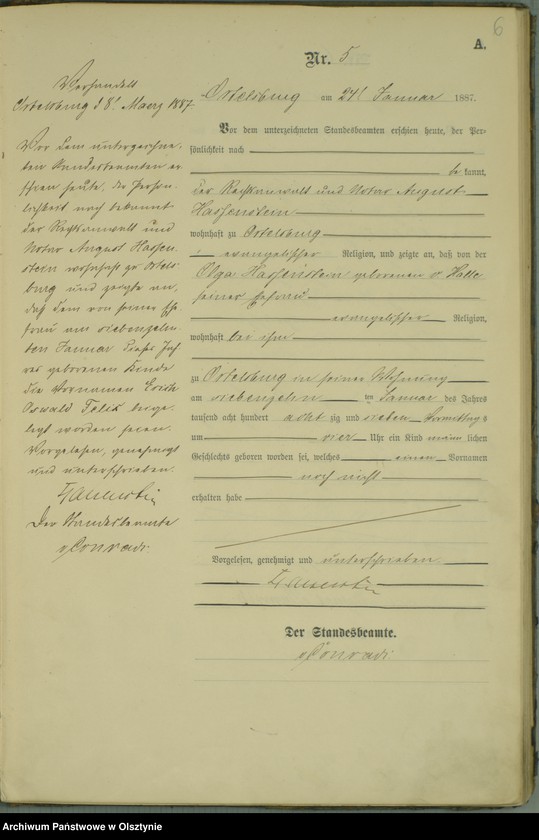 6
A.
Nr. 5
Ortelsburg am 24t Januar 1887.
Vor dem unterzeichneten Standesbeamten erschien heute, der Per-
sönlichkeit nach
be kannt,
der Rechtsanwalt und Notar August
Hassenstein
wohnhaft zu Ortelsburg
evangelischer Religion, und zeigte an, daß von der
Olga Hassenstein geborenen v. Halle
seiner Ehefrau
evangelischer Religion,
wohnhaft bei ihm
zu Ortelsburg in seiner Wohnung
am siebenzehn ten Januar des Jahres
tausend acht hundert acht zig und sieben Vormittags
um vier Uhr ein Kind männ lichen
Geschlechts geboren worden sei, welches einen Vornamen
noch nicht
erhalten habe
Vorgelesen, genehmigt und unterschrieben.
Hassenstein
Der Standesbeamte.
Conradi.
Verhandelt
Ortelsburg d 8t Maerz 1887.
Vor dem unterzeichne-
ten Standesbeamten er-
schien heute, der Persön-
lichkeit nach bekannt
der Rechtsanwalt und
Notar August Hassen-
stein wohnhaft zu Ortels-
burg und zeigte an,
daß dem von seiner Ehe-
frau am siebenzehn-
ten Januar dieses Jah-
res geborenen Kinde
die Vornamen Erich
Oswald Felix beige-
legt worden seien.
Vorgelesen, genehmigt
und unterschrieben.
Hassenstein
Der Standesbeamte
Conradi.
Archiwum Państwowe w Olsztynie